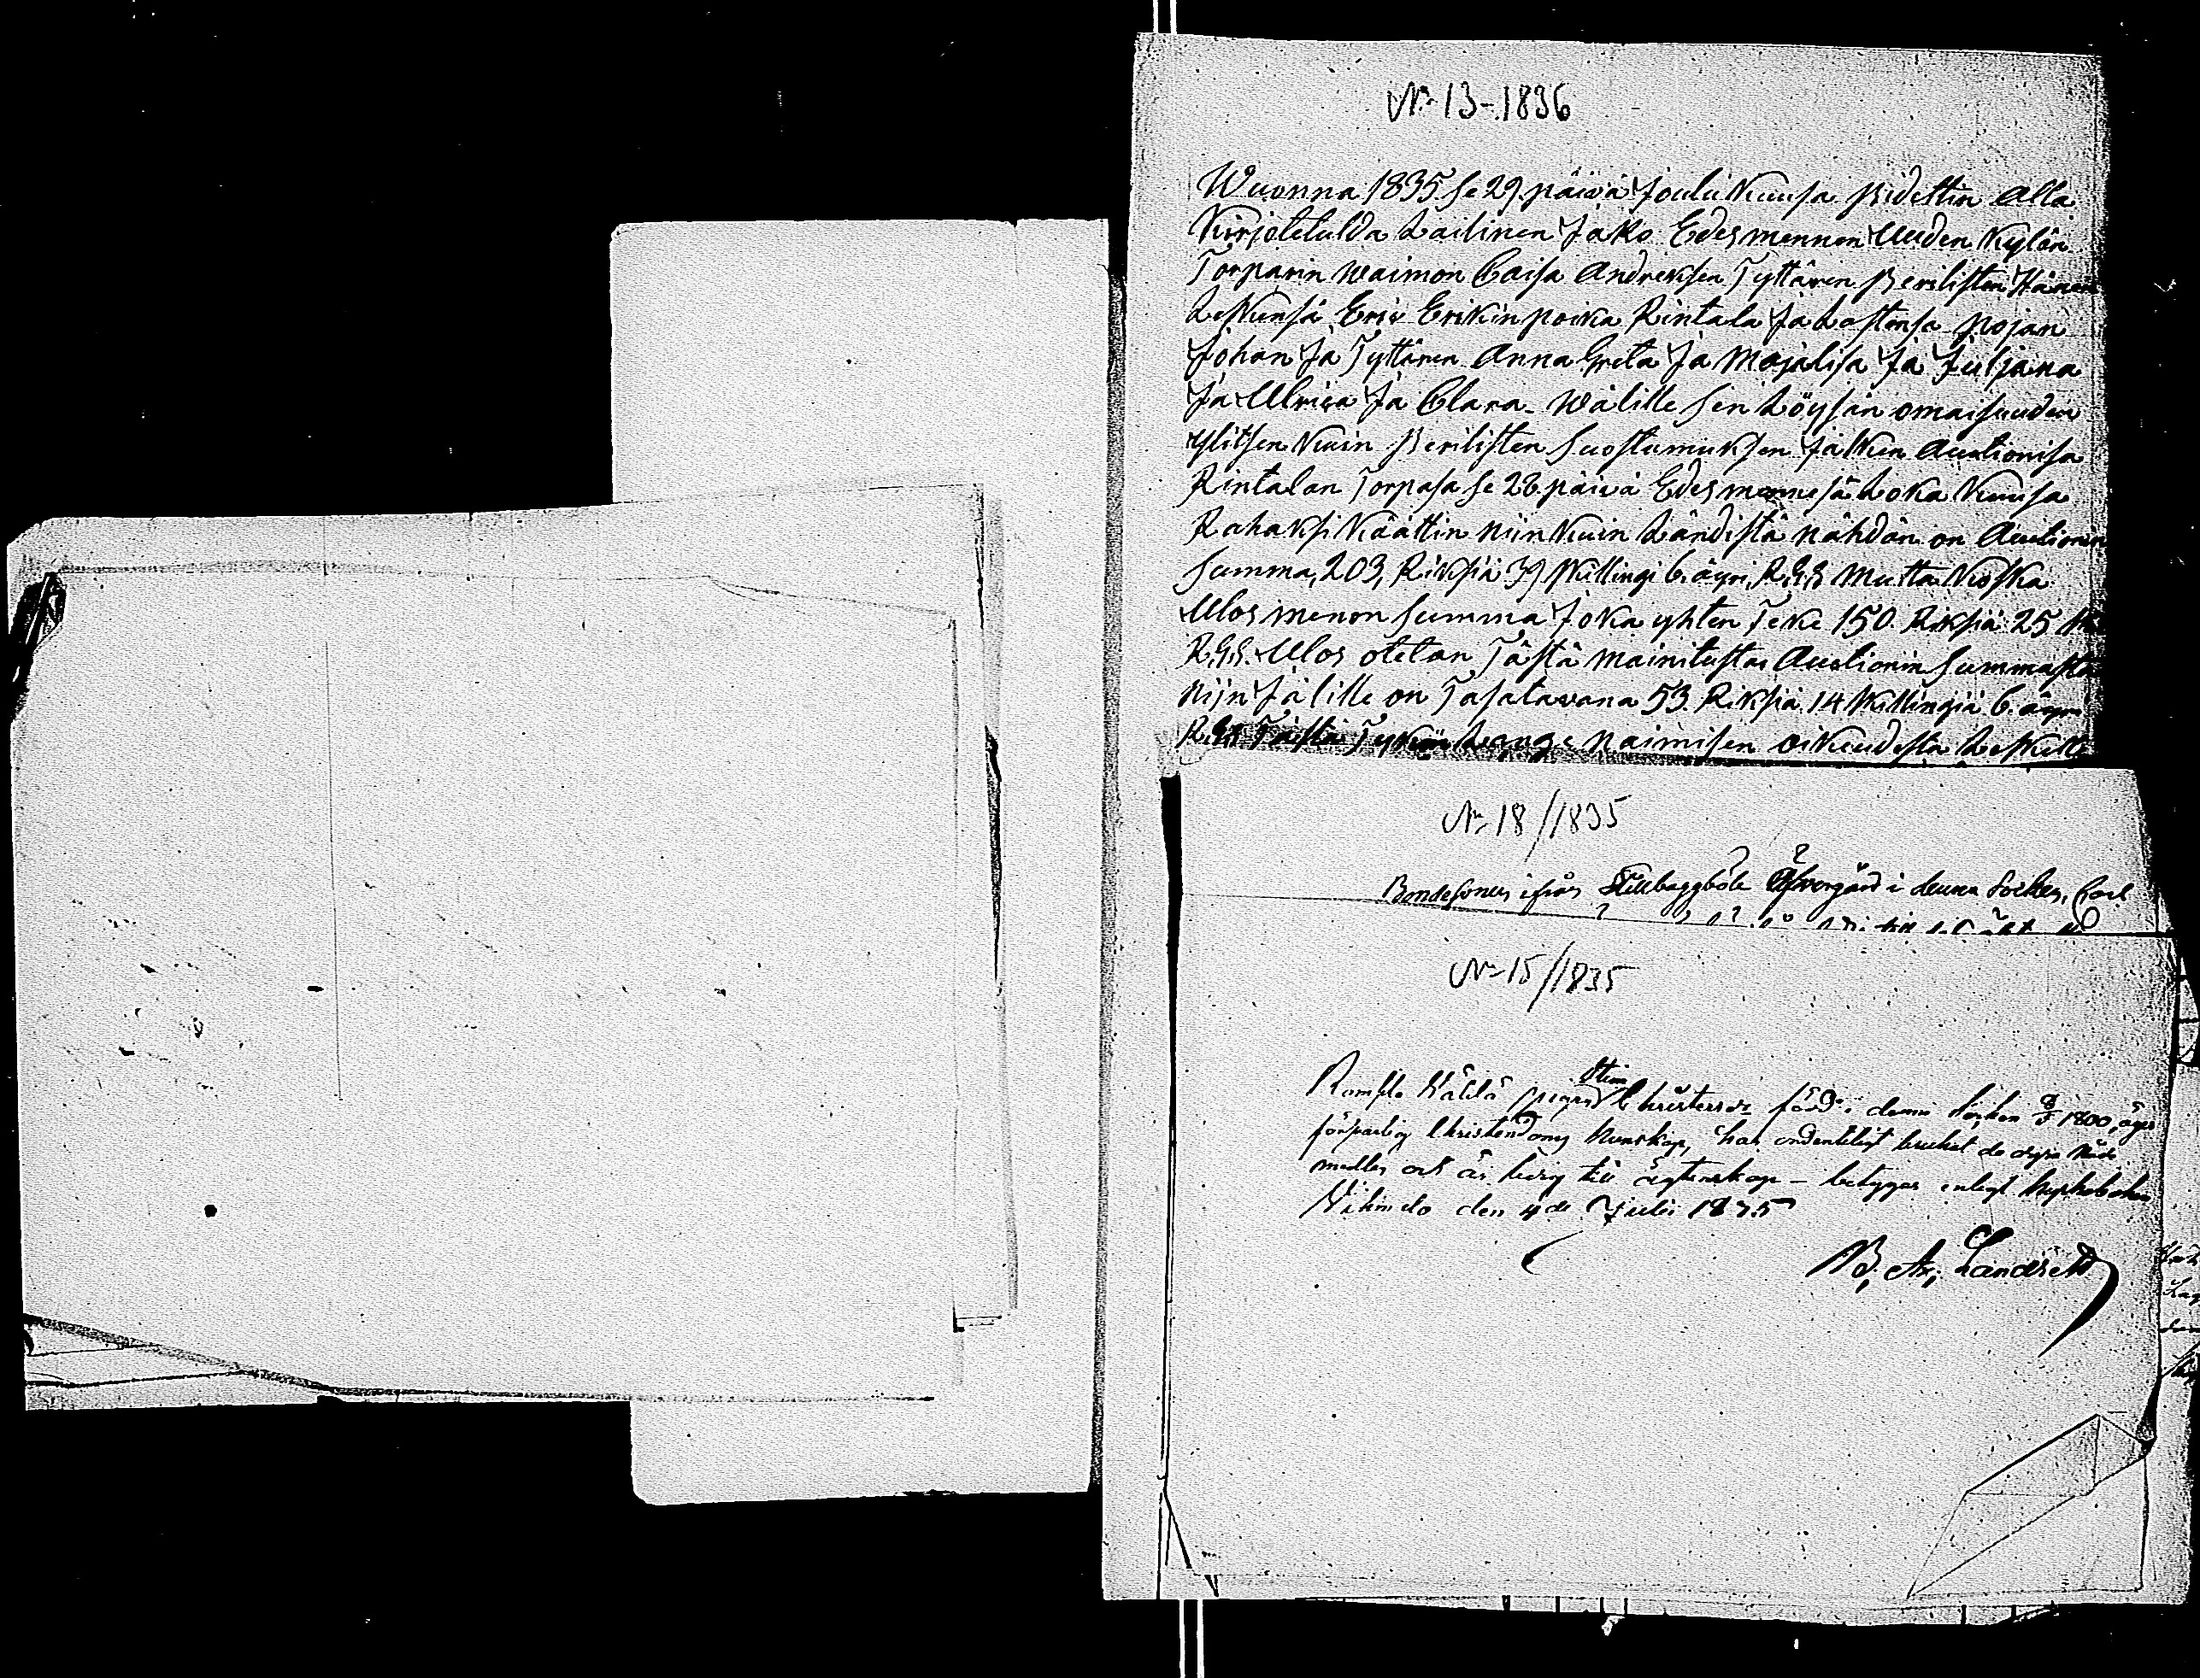 No 13-1836
Wuonna 1835 se 29 päivä Joulu Kuusa pidettin alla
Kirjotetulda Lailinen Jako Edesmennen Uuden Kylän
Torparin waimon Caisa Andreksen Tyttären Perilisten Hänen
Leskensä Eric Erikin poika Rintala Ja Lastensa Pojan
Johan Ja Tyttären Anna Greta Ja Majalisa Ja Juljana
Ja Ulrica Ja Clara Wälille sen Löysän omaisuuden
Ylitsen Kuin Perilisten Suostumuksen Jälken Auctionisa
Rintalan Torpasa se 28 päivä Edesmennesä Loka Kuusa
Rahaksi Käättin niin Kuin Ländistä nähdän on Auctionin
Summa, 203, Riksiä 39 Killingi 6. äyri, R.G.S Mutta Koska
Ulos menon Summa Joka yhten Teke 150 Riksiä 25
R.G.S. Ulos otetan Tästä mainitustas Auctionin Summasta
Nijn Jälille on Tasatawana 53. Riksiä 14 Killingiä 6. äyri
Tästä naimisen oikeudesta Leskelle
No 18/1835
Bondesonen ifrån Öfvergård i denna Socken, Carl
No 15/1835
Stina
pigan Christersdr född i denna Socken 1800, äger
försvarlig Christendoms Kunskap, har ordenteligt brukat de dyra Nåde
medlen och är ledig till ägtenskap – betygas enligt
den 4de Julii 1835